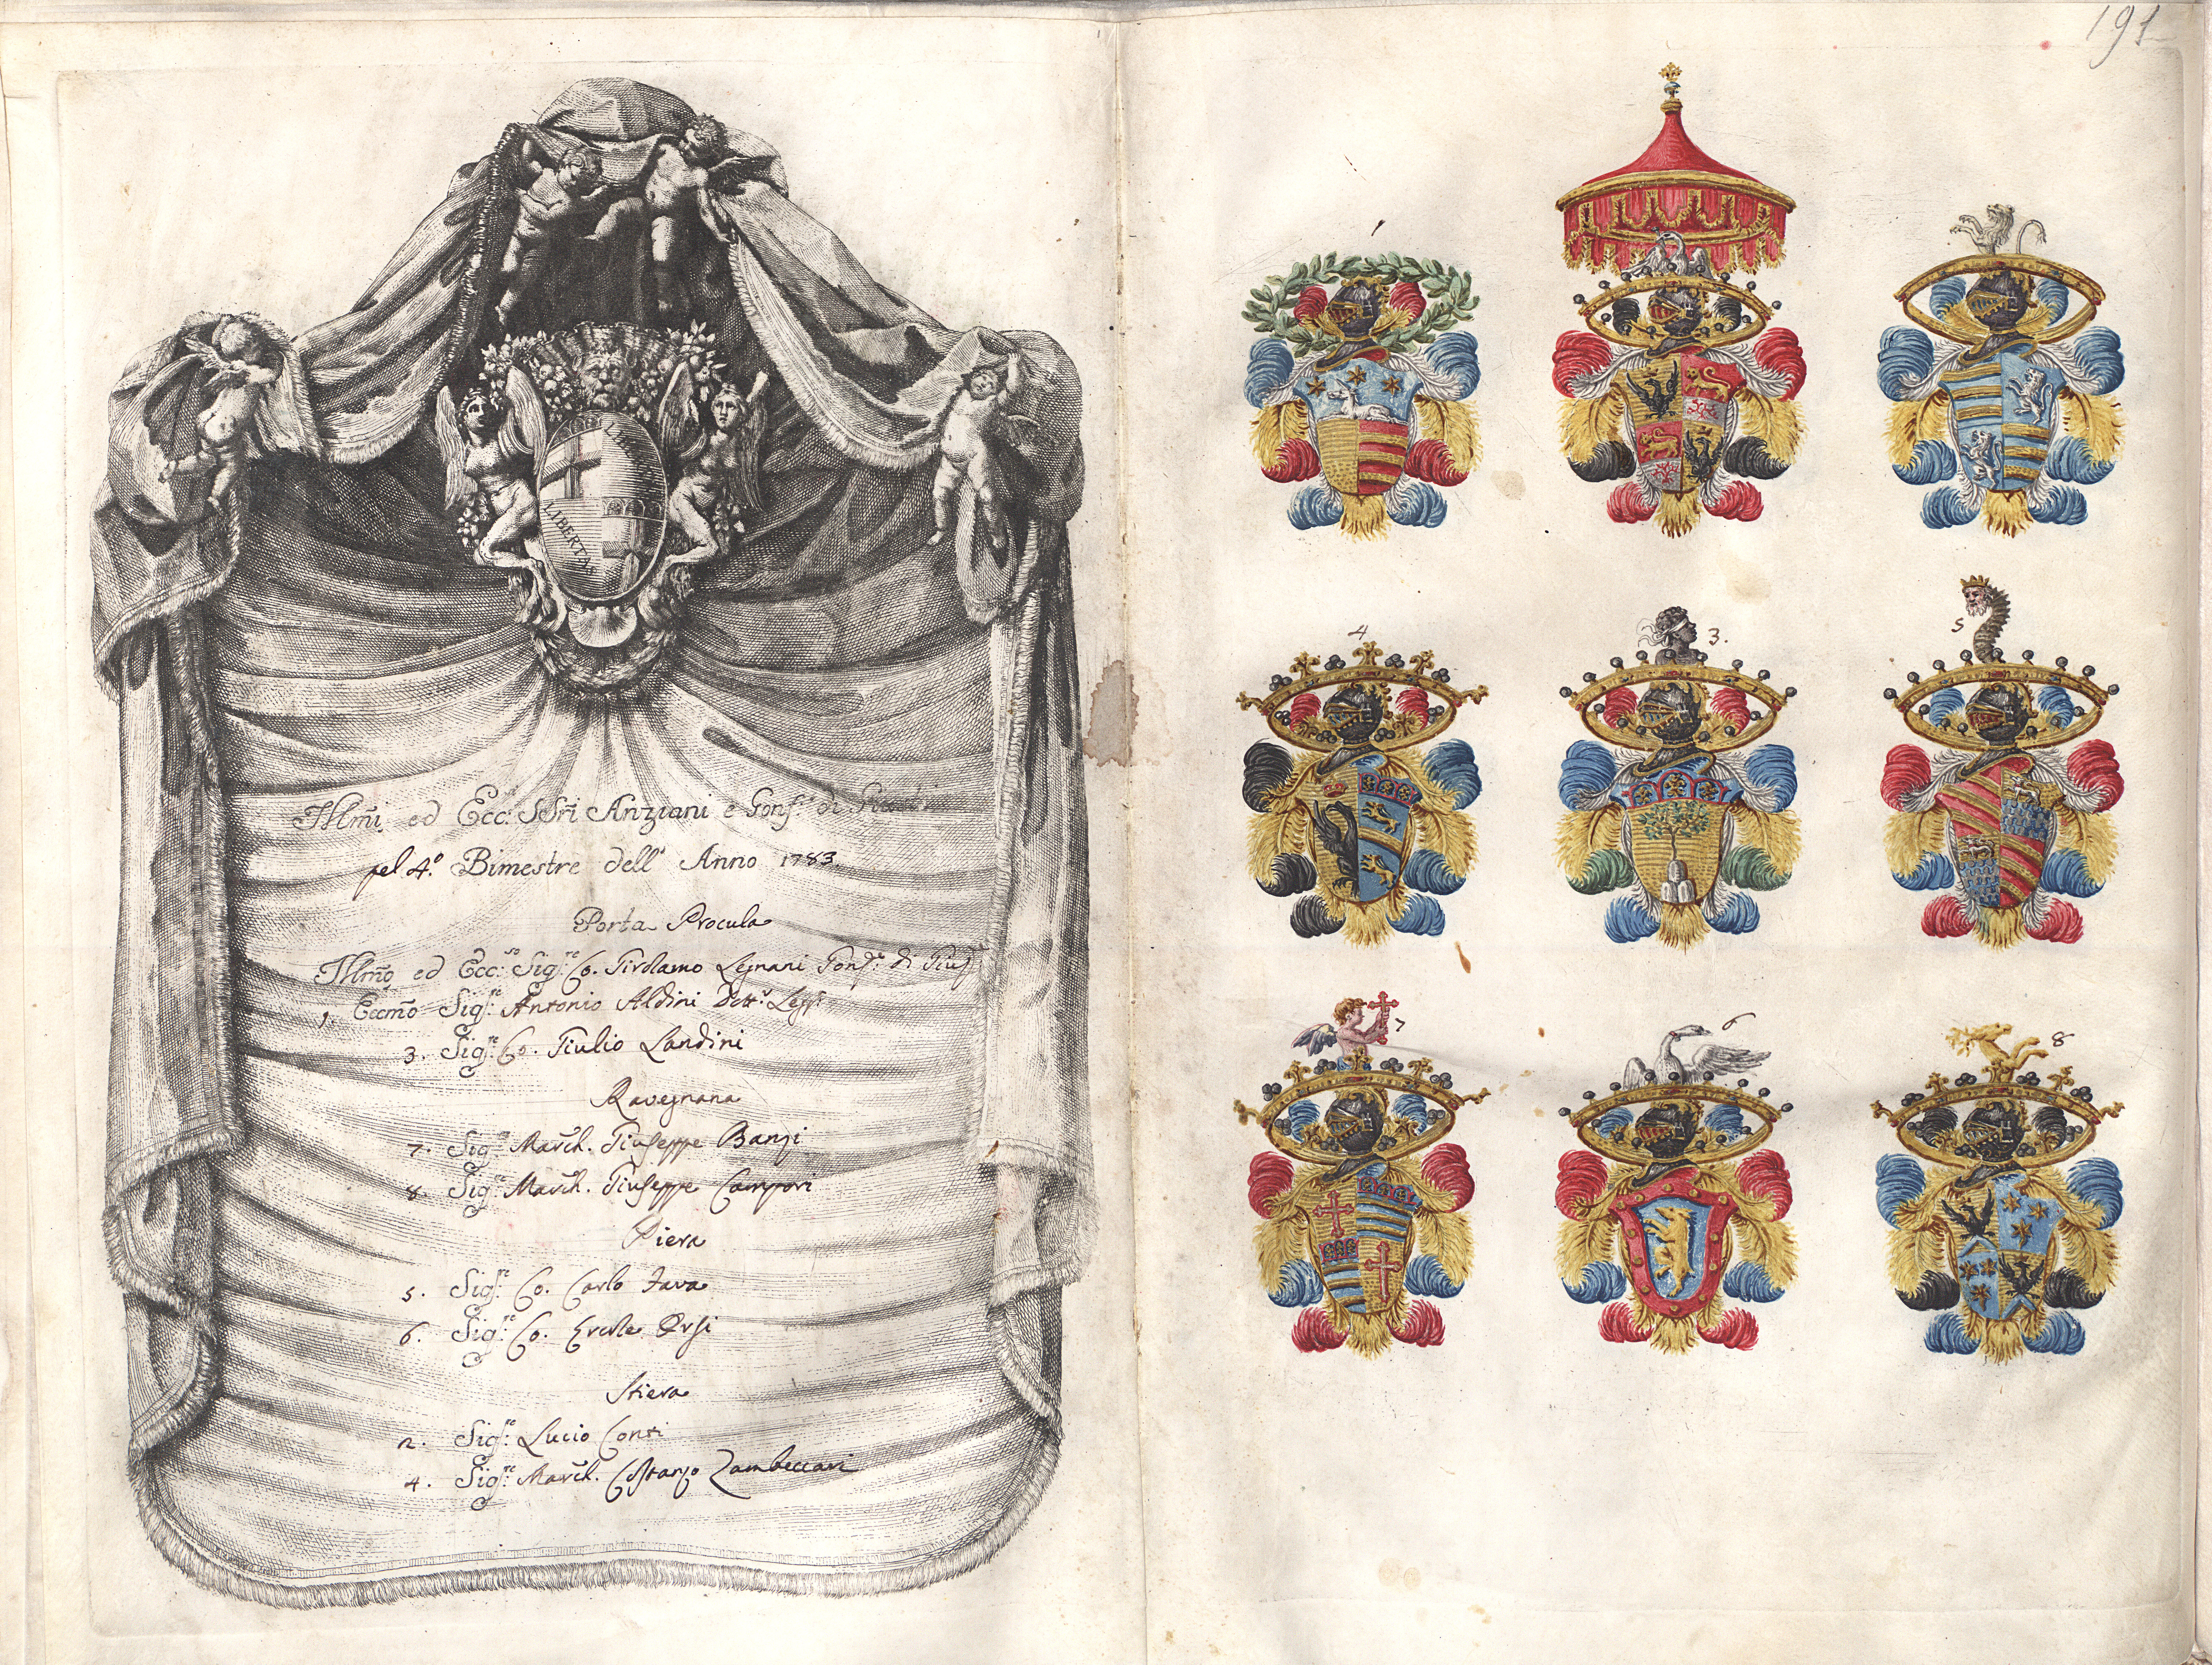 191
LIBERTAS
LIBERTAS
Illmi. ed Ecc.si SSri Anziani e Gonf.re di Giusti
pel 4.º Bimestre dell' Anno 1783.
Porta Procula
Illmo ed Ecc.so Sig.re Co. Girolamo Legnani Gonf.re di Giust
1. Eccmo Sig.re Antonio Aldini Dott.r Legg.
3. Sig.re Co. Giulio Landini
Ravegnana
7. Sig.re March. Giuseppe Banzi
8. Sig.re March. Giuseppe Campori
Piera
5. Sig.re Co. Carlo Fava
6. Sig.re Co. Ercole Orsi
Stiera
2. Sig.re Lucio Conti
4. Sig.re March. Costanzo Zambeccari
1
4
3.
5
7
6
8